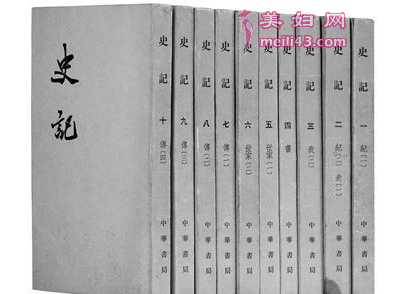 美妇网
meili43.com
史記
史記 十 傳(四) 中華書局
史記 九 傳(三) 中華書局
史記 八 傳(二) 中華書局
史記 七 傳(一) 中華書局
史記 六 世家(二) 中華書局
史記 五 世家(一) 中華書局
史記 四 書 中華書局
史記 三 表(二) 中華書局
史記 二 紀(二) 表(一) 中華書局
史記 一 紀(一) 中華書局